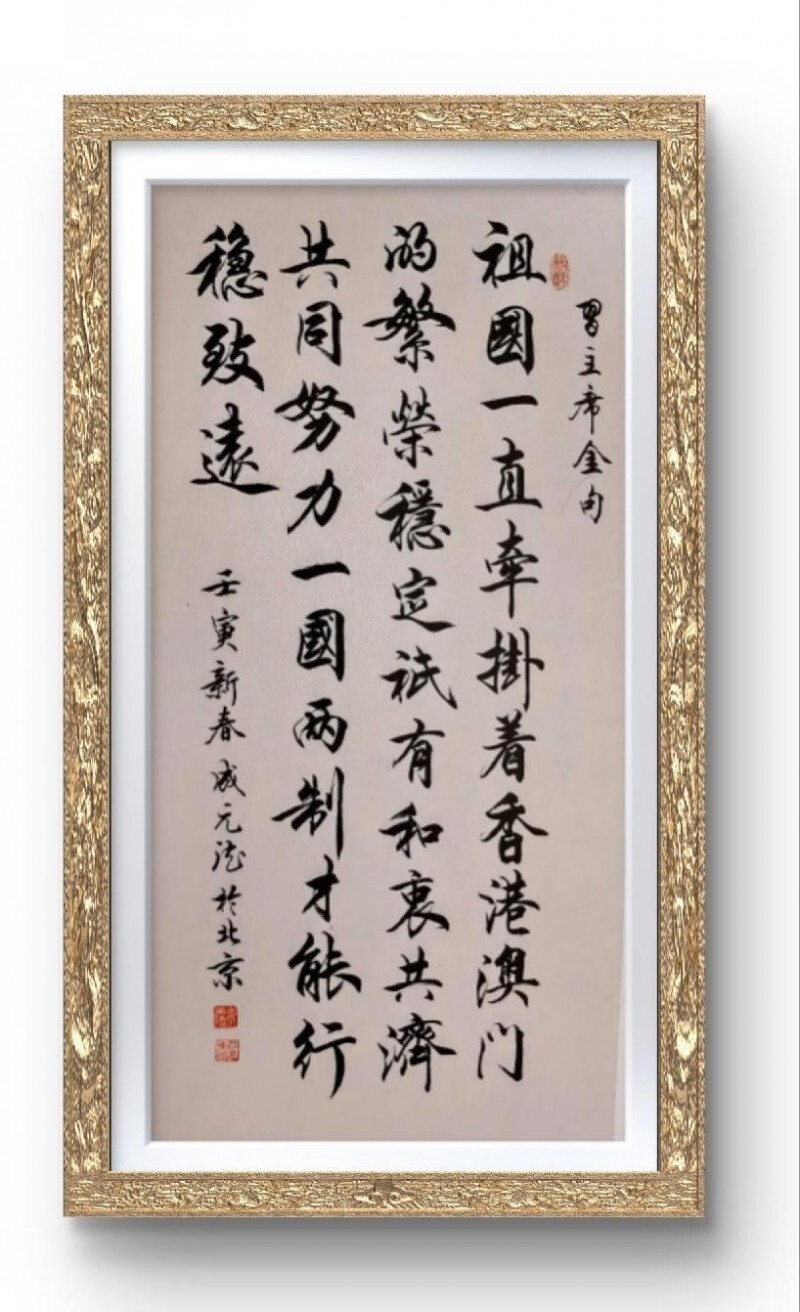 習主席金句
祖國一直牽掛着香港澳門
的繁榮穩定祇有和衷共濟
共同努力一國兩制才能行
穩致遠
壬寅新春成元法於北京